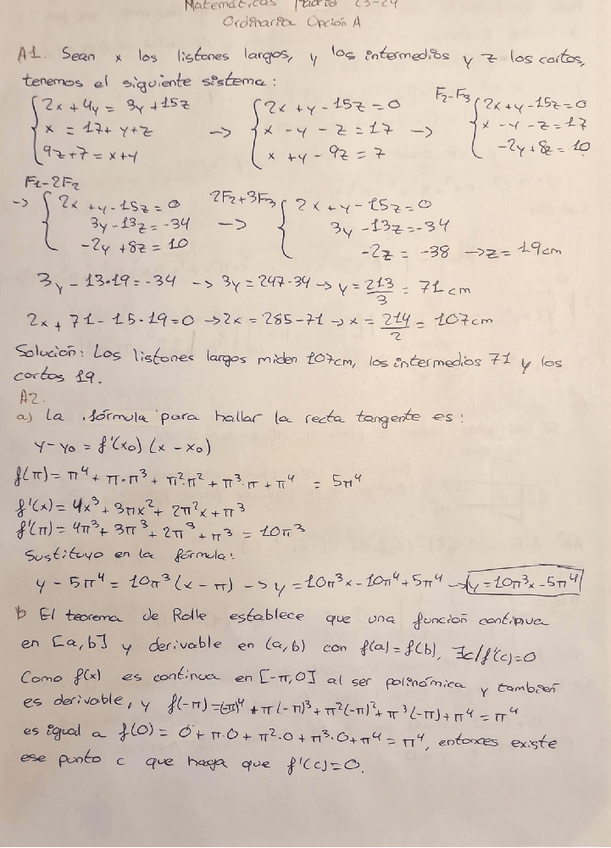 Matemáticas Madrid 23-24
Ordinaria Opción A
A1. Sean x los listones largos, y los intermedios y z los cortos,
tenemos el siguiente sistema:
{2x + 4y = 3y + 15z → {2x + y - 15z = 0 F2-F3 → {2x + y - 15z = 0
x = 17 + y + z   x - y - z = 17   x - y - z = 17
9z + 7 = x + y   x + y - 9z = 7   -2y + 8z = 10
F1-2F2 → {2x + y - 15z = 0 2F2+3F3 → {2x + y - 15z = 0
3y - 13z = -34   3y - 13z = -34
-2y + 8z = 10   -2z = -38 → z = 19cm
3y - 13·19 = -34 → 3y = 247-34 → y = 213/3 = 71cm
2x + 71 - 15·19 = 0 → 2x = 285-71 → x = 214/2 = 107cm
Solución: Los listones largos miden 107cm, los intermedios 71 y los
cortos 19.
A2.
a) La fórmula para hallar la recta tangente es:
y - y₀ = f'(x₀) (x - x₀)
f(π) = π⁴ + π·π³ + π²π² + π³·π + π⁴ = 5π⁴
f'(x) = 4x³ + 3πx² + 2π²x + π³
f'(π) = 4π³ + 3π³ + 2π³ + π³ = 10π³
Sustituyo en la fórmula:
y - 5π⁴ = 10π³ (x - π) → y = 10π³x - 10π⁴ + 5π⁴ → y = 10π³x - 5π⁴
b El teorema de Rolle establece que una función continua
en [a,b] y derivable en (a,b) con f(a) = f(b), ∃c/f'(c)=0
Como f(x) es continua en [-π,0] al ser polinómica y también
es derivable, y f(-π) = (-π)⁴ + π(-π)³ + π²(-π)² + π³(-π) + π⁴ = π⁴
es igual a f(0) = 0 + π·0 + π²·0 + π³·0 + π⁴ = π⁴, entonces existe
ese punto c que haga que f'(c)=0.